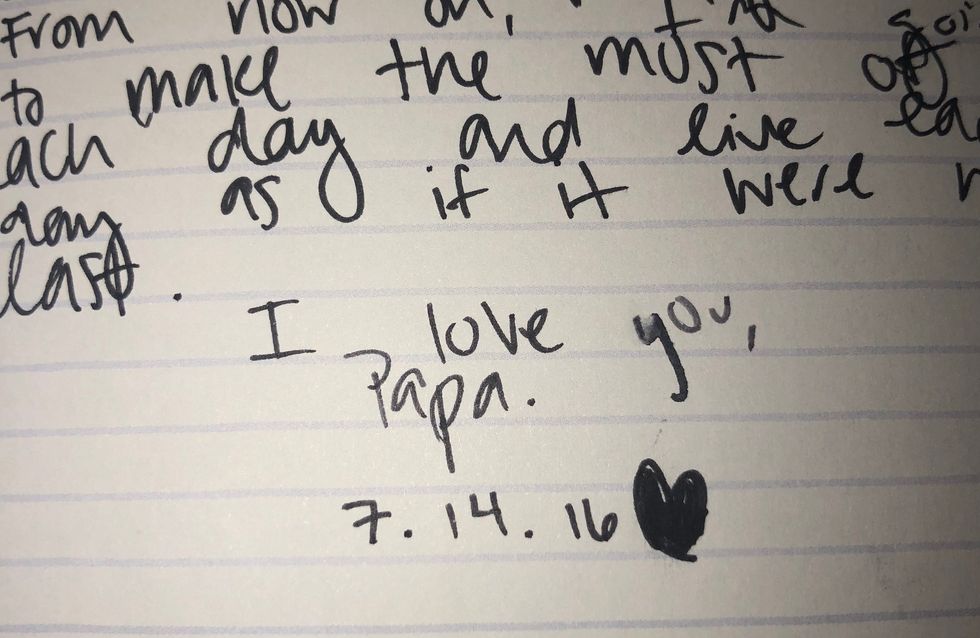 From now on, I'm goi
to make the most of
each day and live ea
day as if it were m
last.
I love you,
Papa.
7.14.16